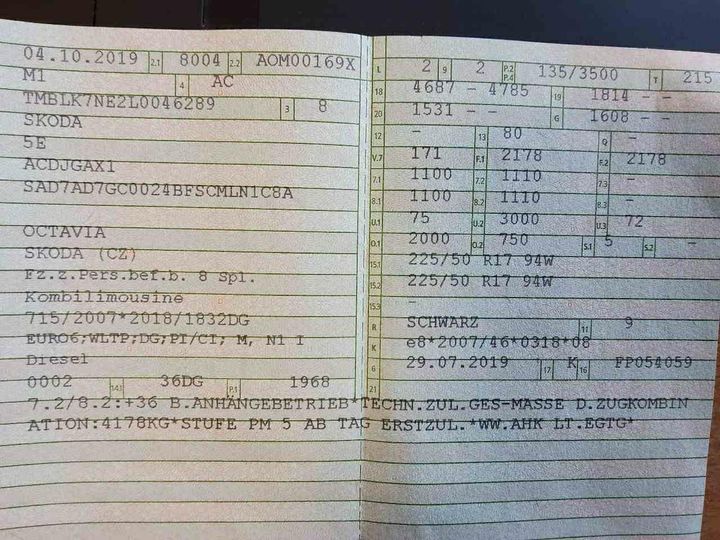 04.10.2019 2.1 8004 2.2 AOM00169X
M1 4 AC
TMBLK7NE2L0046289 3 8
SKODA
5E
ACDJGAX1
SAD7AD7GC0024BFSCMLN1C8A
OCTAVIA
SKODA (CZ)
Fz.z.Pers.bef.b. 8 Spl.
Kombilimousine
715/2007*2018/1832DG
EURO6;WLTP;DG;PI/CI; M, N1 I
Diesel
0002 14.1 36DG P.1 1968
L 2 9 2 P.2 P.4 135/3500 T 215
18 4687 - 4785 19 1814 - -
20 1531 - - G 1608 - -
12 - 13 80 Q -
V.7 171 F.1 2178 F.2 2178
7.1 1100 7.2 1110 7.3 -
8.1 1100 8.2 1110 8.3 -
U.1 75 U.2 3000 U.3 72
O.1 2000 O.2 750 S.1 5 S.2 -
15.1 225/50 R17 94W
15.2 225/50 R17 94W
15.3 -
R SCHWARZ 11 9
K e8*2007/46*0318*08
6 29.07.2019 17 K 16 FP054059
21
7.2/8.2:+36 B.ANHÄNGEBETRIEB*TECHN.ZUL.GES-MASSE D.ZUGKOMBIN
ATION:4178KG*STUFE PM 5 AB TAG ERSTZUL.*WW.AHK LT.EGTG*